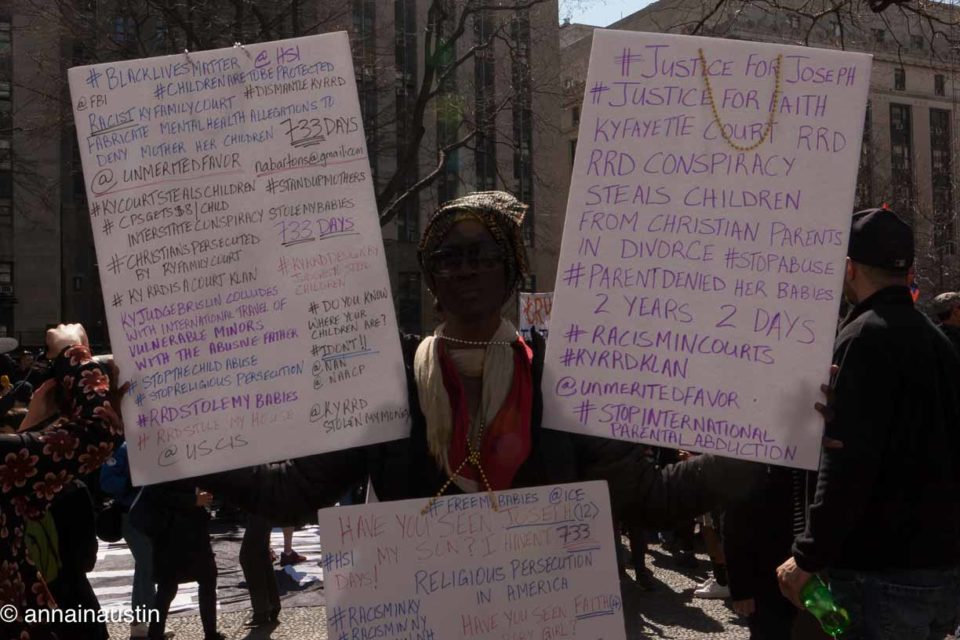 #BLACKLIVESMATTER @HSI
@FBI #CHILDREN ARE TO BE PROTECTED
RACIST KY FAMILY COURT #DISMANTLE KYRRD
FABRICATE MENTAL HEALTH ALLEGATIONS TO
DENY MOTHER HER CHILDREN 733 DAYS
@UNMERITEDFAVOR nabartons@gmail.com
#KYCOURTSTEALSCHILDREN #STANDUPMOTHERS
#CPSGETS$8/CHILD
INTERSTATE CONSPIRACY STOLEMYBABIES
733 DAYS
#CHRISTIANSPERSECUTED
BY KYFAMILYCOURT
CHILDREN
#KYRAD IS A COURT KLAN
KYJUDGEBRISLIN COLLUDES
WITH INTERNATIONAL TRAVEL OF
VULNERABLE MINORS
WITH THE ABUSIVE FATHER
#DO YOU KNOW
WHERE YOUR
CHILDREN ARE?
#IDONT!!
@NAN
@NAACP
#STOPTHECHILD ABUSE
#STOPRELIGIOUS PERSECUTION
#RRDSTOLEMYBABIES
#RRDSTOLE MY HOUSE
@USCIS
@KYRRD
STOLEN MY MONEY
#JUSTICE FOR JOSEPH
#JUSTICE FOR FAITH
KYFAYETTE COURT RRD
RRD CONSPIRACY
STEALS CHILDREN
FROM CHRISTIAN PARENTS
IN DIVORCE #STOPABUSE
#PARENTDENIED HER BABIES
2 YEARS 2 DAYS
#RACISMINCOURTS
#KYRRDKLAN
@UNMERITEDFAVOR
#STOPINTERNATIONAL
PARENTAL ABDUCTION
#FREEMYBABIES @ICE
HAVE YOU SEEN JOSEPH (12)
#HSI MY SON? I HAVENT 733
DAYS!
RELIGIOUS PERSECUTION
IN AMERICA
#RACISMINKY
#RACISMINNY
HAVE YOU SEEN FAITH
GIRL?
© annainaustin